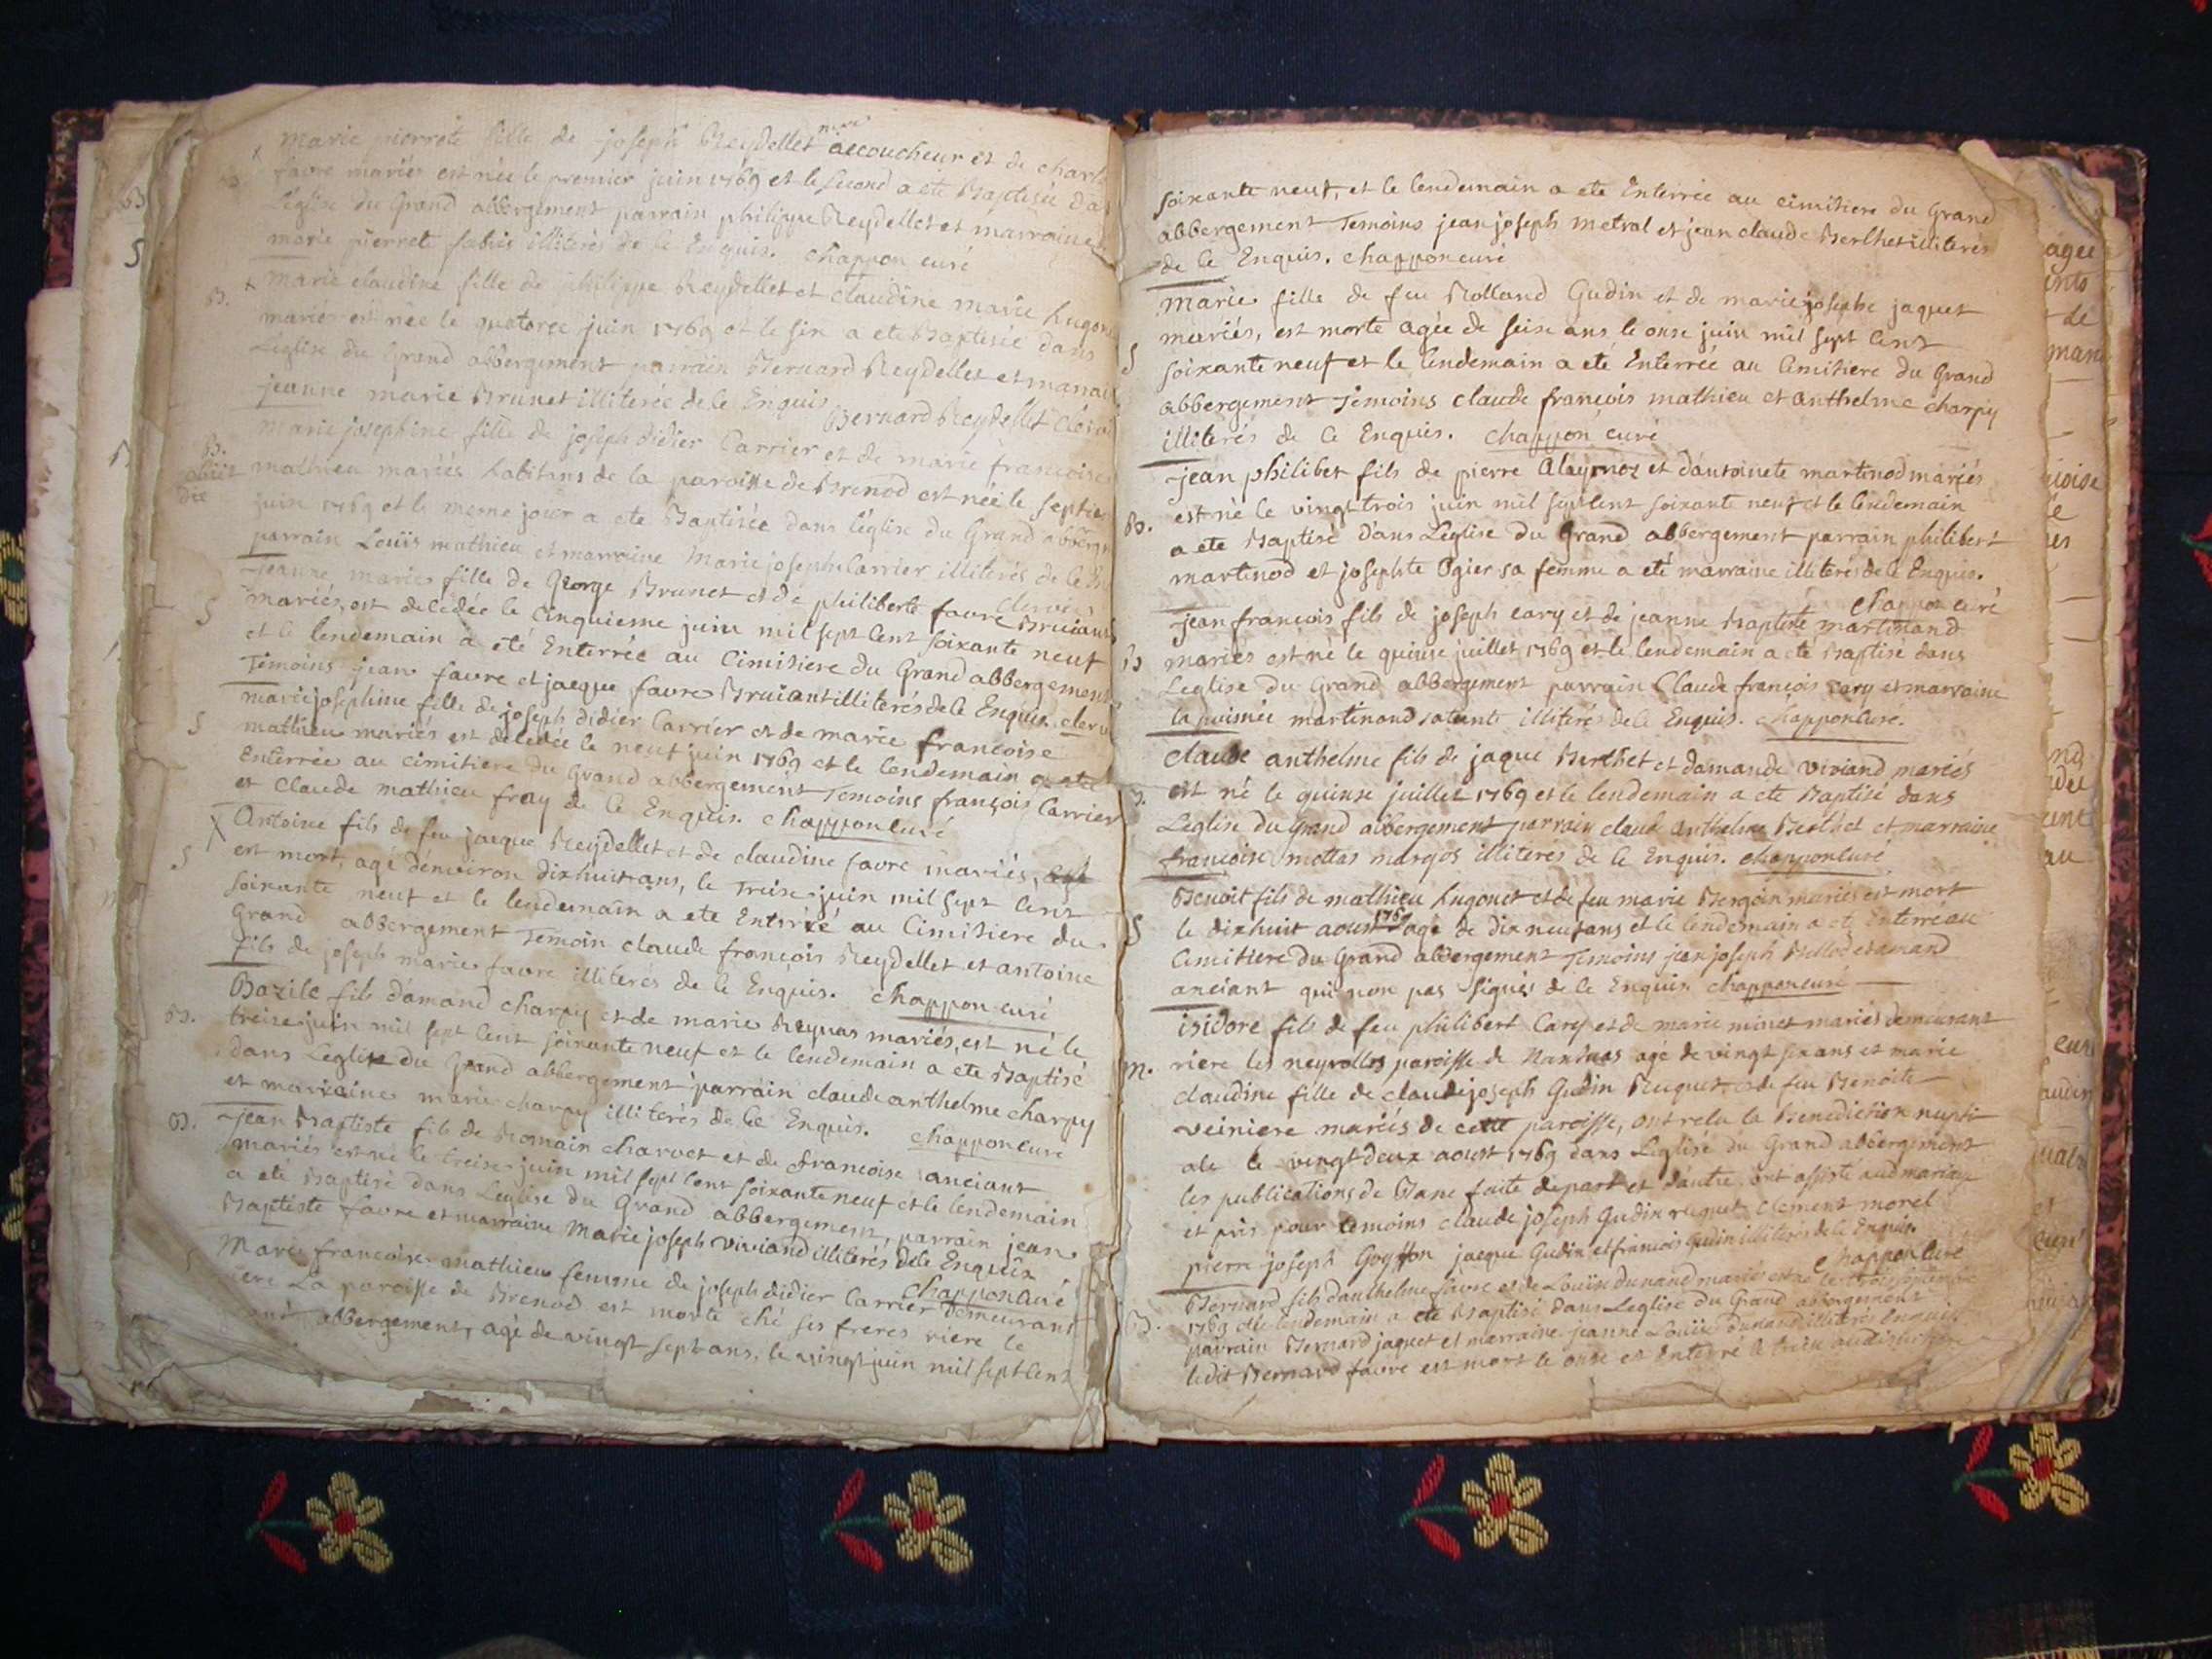 Marie pierrete fille de joseph Reydellet accoucheur et de charl
favre mariés est née le premier juin 1769 et le second a eté Baptisée da
L'eglise du Grand abbergement parrain philippe Reydellet et marraine
marie pierret illiterés de ce Enquis. chappon curé
B. x Marie claudine fille de philippe Reydellet et claudine marie hugon
mariés est née le quatorze juin 1769 et le six a eté Baptisée dans
Leglise du Grand abbergement parrain Bernard Reydellet et marrai
jeanne marie Brunet illiterée de ce Enquis
Bernard Reydellet
Marie josephine fille de joseph didier Carrier et de marie francoise
B. mathieu mariés habitans de la paroisse de Brenod est née le septie
juin 1769 et le meme jour a eté Baptisée dans l'église du Grand abberg
parrain Louïs mathieu et marraine Marie josephe Carrier illiterés de ce En
Jeanne marie fille de George Brunet et de philiberte favre Bruiant
S mariés, est decedée le Cinquieme juin mil sept cent soixante neuf
et le lendemain a eté Enterrée au Cimitiere du Grand abbergement
Temoins jean favre et jacque favre Bruiant illiterés de ce Enquis.
marie josephine fille de joseph didier Carrier et de marie francoise
S mathieu mariés est decedée le neuf juin 1769 et le lendemain a eté
Enterrée au cimitiere du Grand abbergement Temoins françois Carrier
et Claude mathieu fray de ce Enquis. chappon curé
X Antoine fils de feu jacque Reydellet et de claudine favre mariés,
S est mort, agé denviron dixhuit ans, le Treise juin mil sept cent
soixante neuf et le lendemain a eté Enterré au Cimitiere du
Grand abbergement Temoin claude françois Reydellet et antoine
fils de joseph marie favre illiterés de ce Enquis. chappon curé
Bazile fils d'amand charpy et de marie Reynas mariés, est né le
B. treise juin mil sept cent soixante neuf et le lendemain a eté Baptisé
dans Leglise du Grand abbergement parrain claude anthelme charpy
et marraine marie charpy illiterés de ce Enquis. chappon curé
B. Jean Baptiste fils de Romain charvet et de francoise anciant
mariés est né le treise juin mil sept cent soixante neuf et le lendemain
a eté Baptisé dans Leglise du Grand abbergement, parrain jean
Baptiste favre et marraine Marie joseph viviand illiterés de ce Enquis
chappon curé
S Marie francoise mathieu femme de joseph didier Carrier demeurant
riere La paroisse de Brenod est morte ché ses freres riere le
abbergement, agé de vingt sept ans, le vingt juin mil sept cent
soixante neuf, et le lendemain a eté Enterrée au cimitiere du Grand
abbergement Temoins jean joseph metral et jean claude Berthet illiterés
de ce Enquis. chappon curé
Marie fille de feu Rolland Gudin et de marie josephe jaquet
mariés, est morte agée de seise ans le onse juin mil sept cent
S soixante neuf et le lendemain a eté Enterrée au Cimitiere du Grand
abbergement Temoins claude françois mathieu et anthelme charpy
illiterés de ce Enquis. chappon curé
jean philibet fils de pierre alaymoz et d'antoinete martinod mariés
B. est né le vingt trois juin mil sept cent soixante neuf et le lendemain
a eté Baptisé dans Leglise du Grand abbergement parrain philibert
martinod et josephte Ogier sa femme a eté marraine illiterés de ce Enquis.
chappon curé
jean francois fils de joseph cary et de jeanne Baptiste martinand
B mariés est né le quinse juillet 1769 et le lendemain a eté Baptisé dans
Leglise du Grand abbergement parrain Claude françois cary et marraine
la puinée martinand sa tante illiterés de ce Enquis. chappon curé.
Claude anthelme fils de jaque Berthet et damande viviand mariés
B. est né le quinse juillet 1769 et le lendemain a eté Baptisé dans
Leglise du Grand abbergement parrain claude anthelme Berthet et marraine
francoise mottas margos illiterés de ce Enquis. chappon curé
Benoit fils de mathieu hugonet et de feu marie Bergoin mariés est mort
S le dixhuit aoust 1769 agé de dix neuf ans et le lendemain a eté Enterré au
Cimitiere du Grand abbergement Temoins jean joseph Bellod et amand
anciant qui n'on pas signés de ce Enquis chappon curé
isidore fils de feu philibert Cary et de marie minet mariés demeurant
m. riere les neyrolles paroisse de Nantuas agé de vingt six ans et marie
claudine fille de claude joseph Gudin Ruquet et de feu Benoite
veiniere mariés de cette paroisse, ont reçu la Benediction nupti
ale le vingt deux aoust 1769 dans Leglise du Grand abbergement
les publications de Banc faite depart et dautre ont assisté audmariage
et pris pour temoins claude joseph Gudin ruquet Clement morel
pierre joseph Goyffon jacque Gudin et francois Gudin illiterés de ce Enquis
chappon curé
Bernard fils d'anthelme favre et de Louïse dunand mariés est né
B. 1769 et le lendemain a eté Baptisé dans Leglise du Grand abbergement
parrain Bernard jaquet et marraine jeanne Louïse dunand illiterés Enquis
ledit Bernard favre est mort le onse et Enterré le